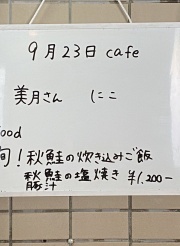 9月23日 cafe
美月さん にこ
Food
旬!秋鮭の炊き込みご飯
秋鮭の塩焼き ¥1,200-
豚汁